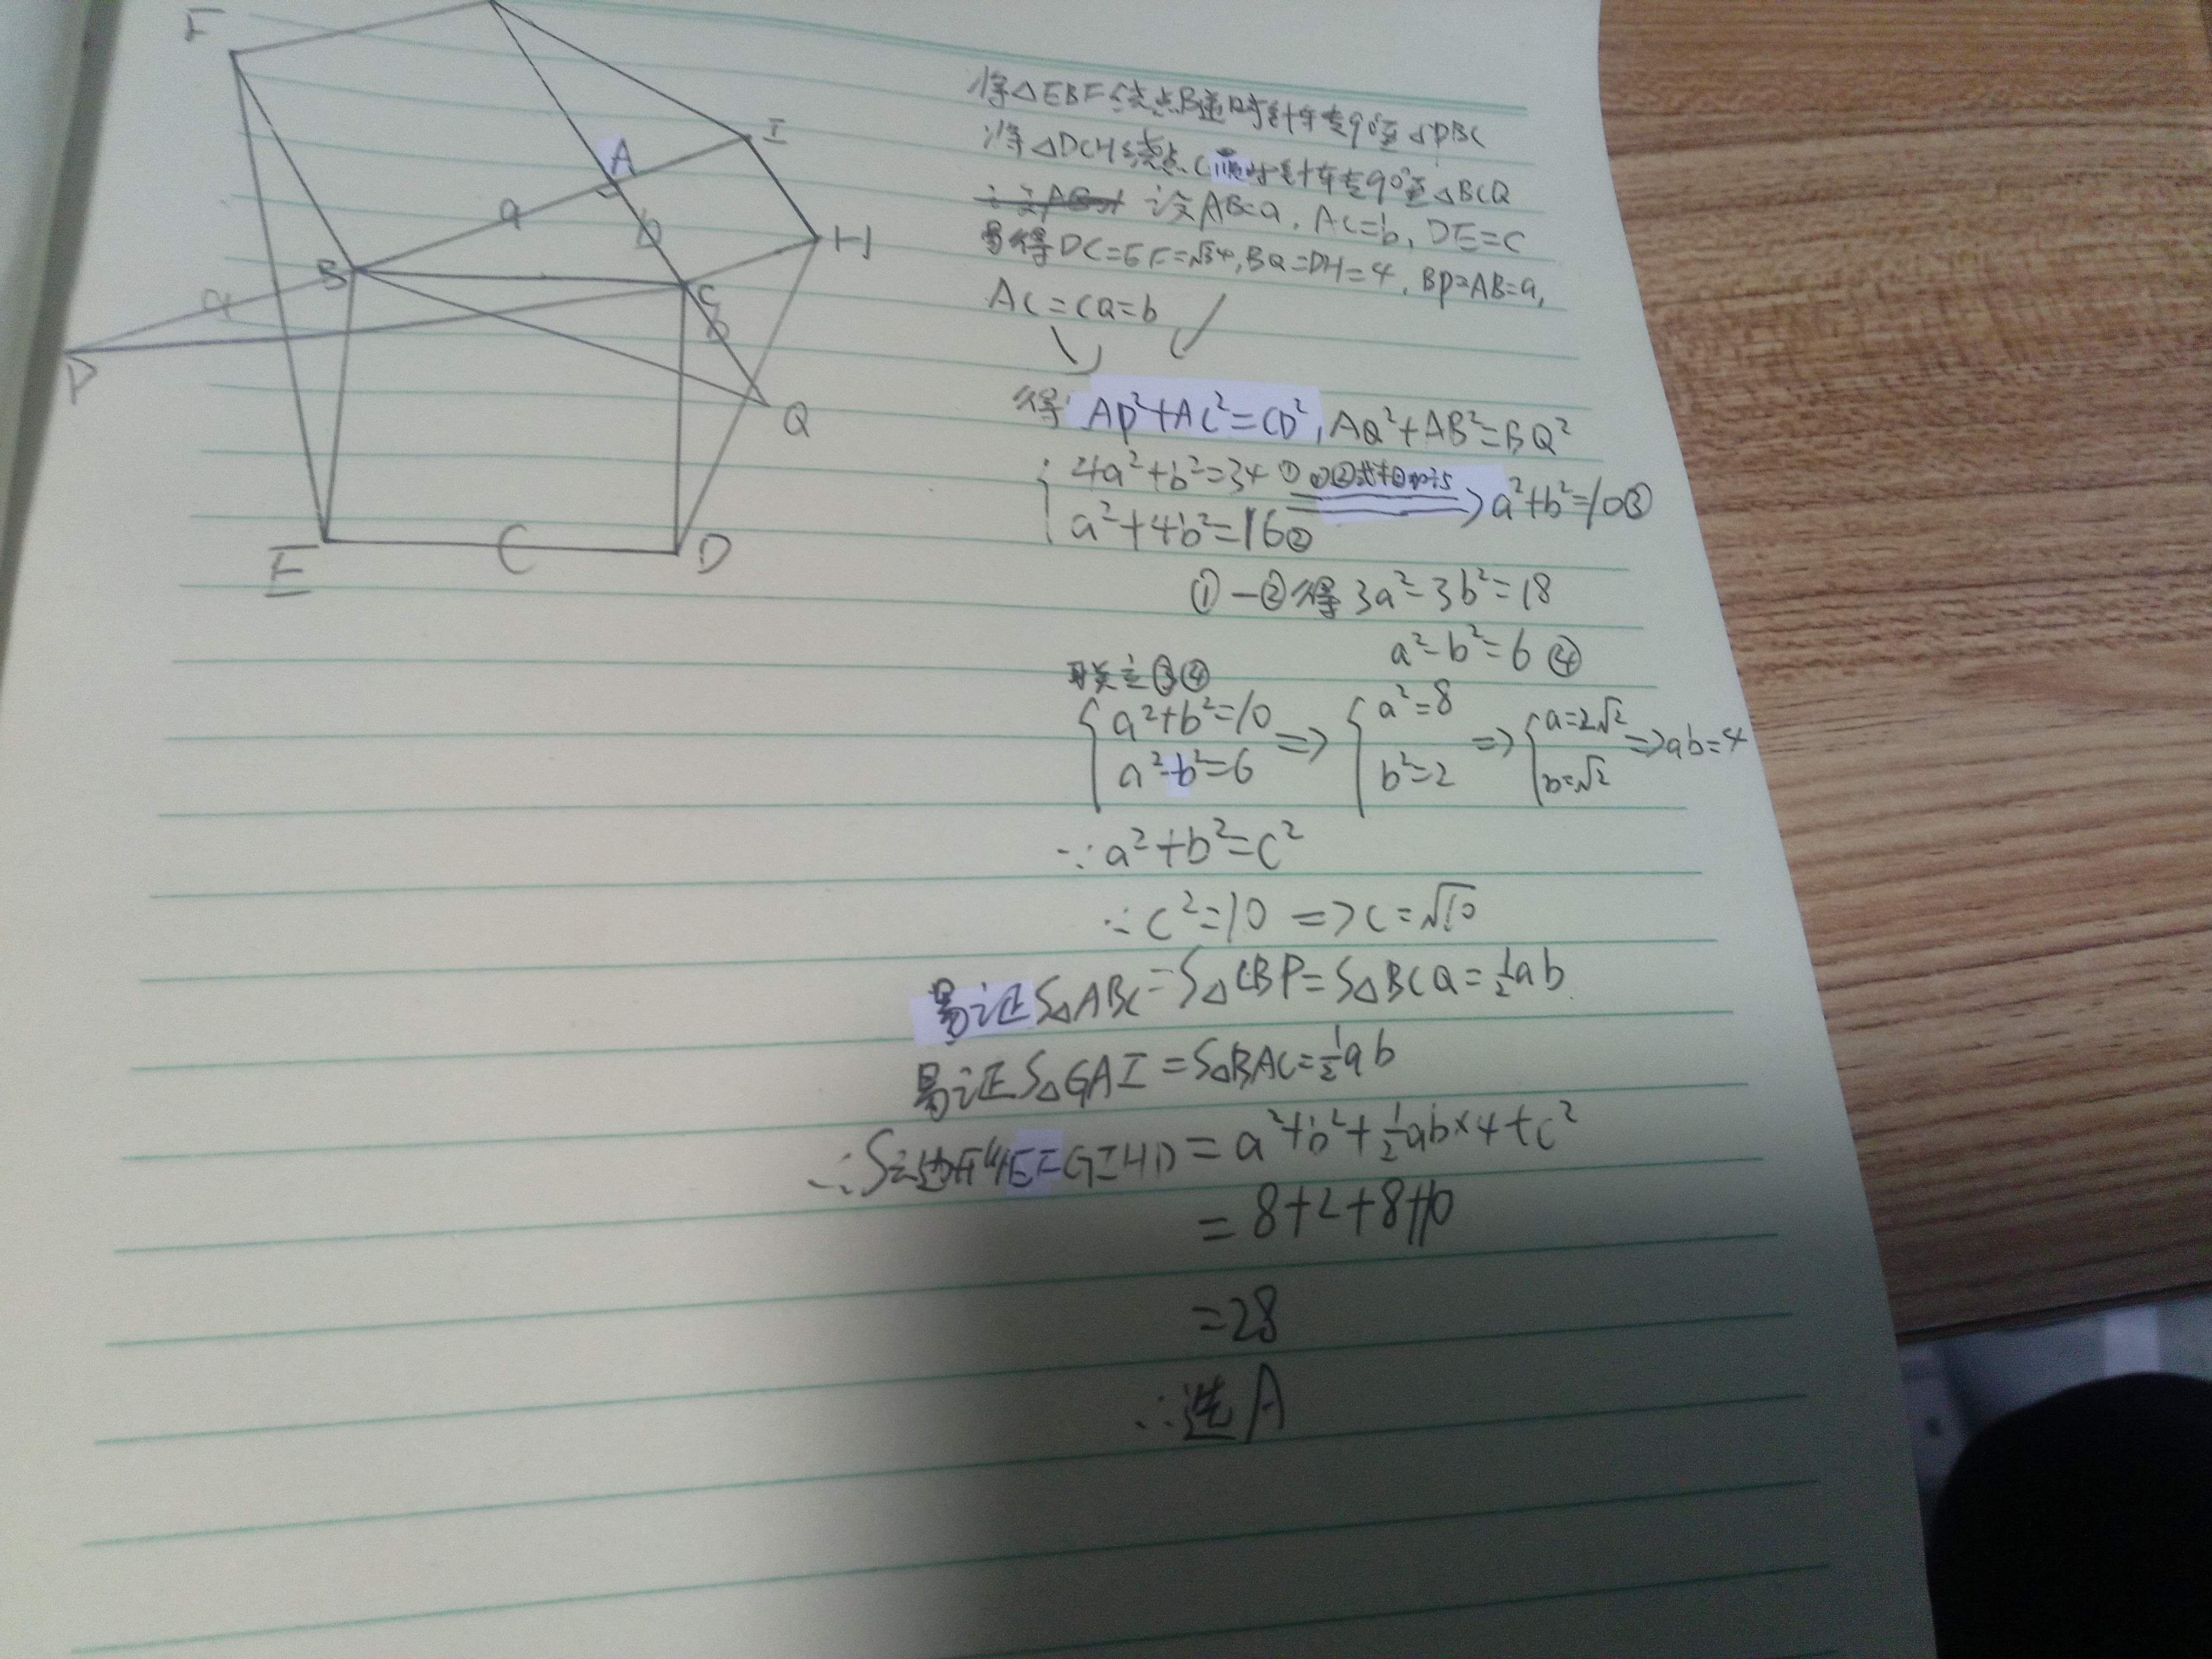 F
A
I
a
b
H
B
C
a
b
P
Q
E
C
D
将△EBF绕点B逆时针转90°至△PBC
将△DCH绕点C顺时针转90°至△BCQ
设AB=a, AC=b, DE=c
易得DC=EF=√34, BQ=DH=4, BP=AB=a,
AC=CQ=b
得 AP²+AC²=CD², AQ²+AB²=BQ²
4a²+b²=34 ① ①②式相加÷5 a²+b²=10③
a²+4b²=16②
①-②得 3a²-3b²=18
a²-b²=6 ④
联立③④
a²+b²=10 => a²=8 => a=2√2 => ab=4
a²-b²=6 b²=2 b=√2
∵a²+b²=c²
∴c²=10 => c=√10
易证S△ABC=S△CBP=S△BCQ=½ab
易证S△GAI=S△BAC=½ab
∴S六边形EFGIHD=a²+b²+½ab×4+c²
=8+2+8+10
=28
∴选A